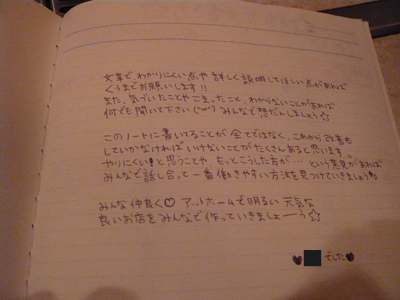 文章で、わかりにくい点や詳しく説明してほしい点があれば
くうまでお願いします!!
また、気づいたことやこまったこと、わからないことがあれば
何でも聞いて下さい(^ω^) みんなで想だんしましょう☆
このノートに書いてることが全てではなく、これから改善も
していかなければいけないことがたくさんあると思います。
やりにくい!と思うことや、もっとこうした方が…という意見があれば
みんなで話し合って一番働きやすい方法を見つけていきましょう!
みんな仲良く♡ アットホームで明るい元気な
良いお店をみんなで作っていきましょーう☆
♥ でした♥